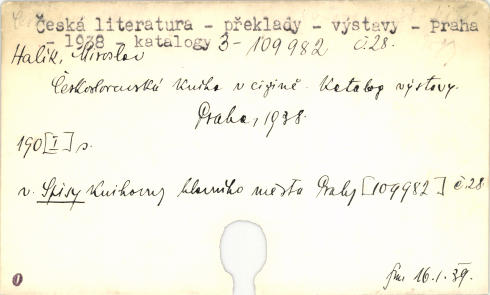 Česká literatura - překlady - výstavy - Praha
- 1938 - katalogy 3-109982 č.28.
Halík, Miroslav
Československá kniha v cizině. Katalog výstavy.
Praha, 1938.
190 [I] s.
v. Spisy knihovny hlavního města Prahy [109982] č.28
16.1.39.